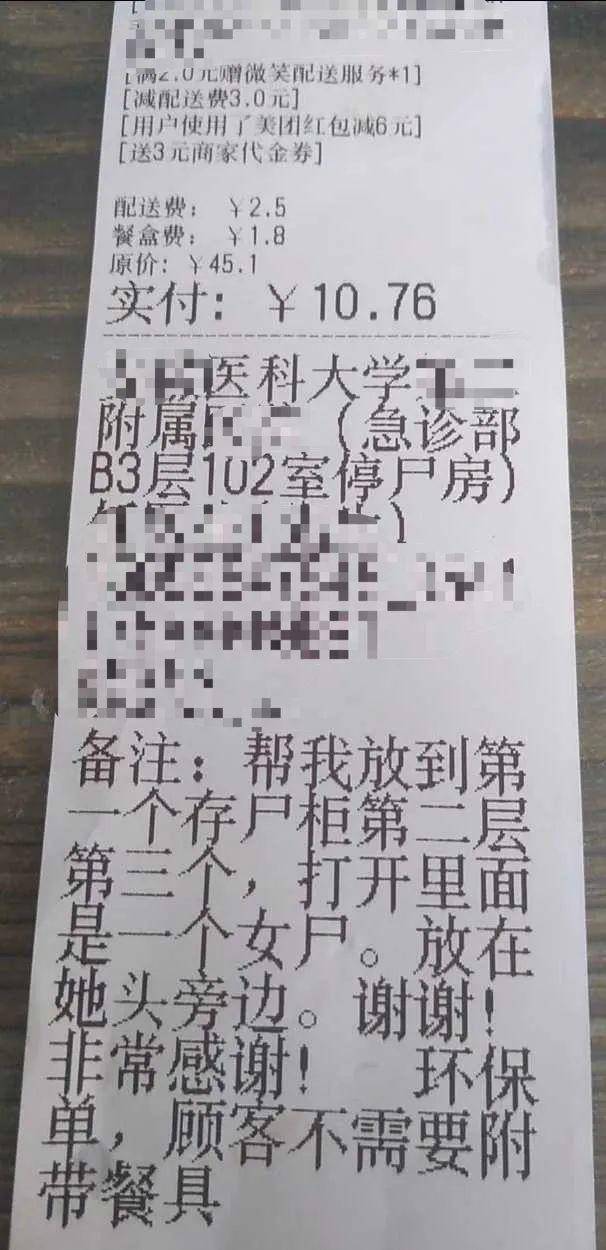 [满2.0元赠微笑配送服务*1]
[减配送费3.0元]
[用户使用了美团红包减6元]
[送3元商家代金券]
配送费：￥2.5
餐盒费：￥1.8
原价：￥45.1
实付：￥10.76
医科大学二
附属（急诊部
B3层102室停尸房）
备注：帮我放到第
一个存尸柜第二层
第三个，打开里面
是一个女尸。放在
她头旁边。谢谢！
非常感谢！ 环保
单，顾客不需要附
带餐具